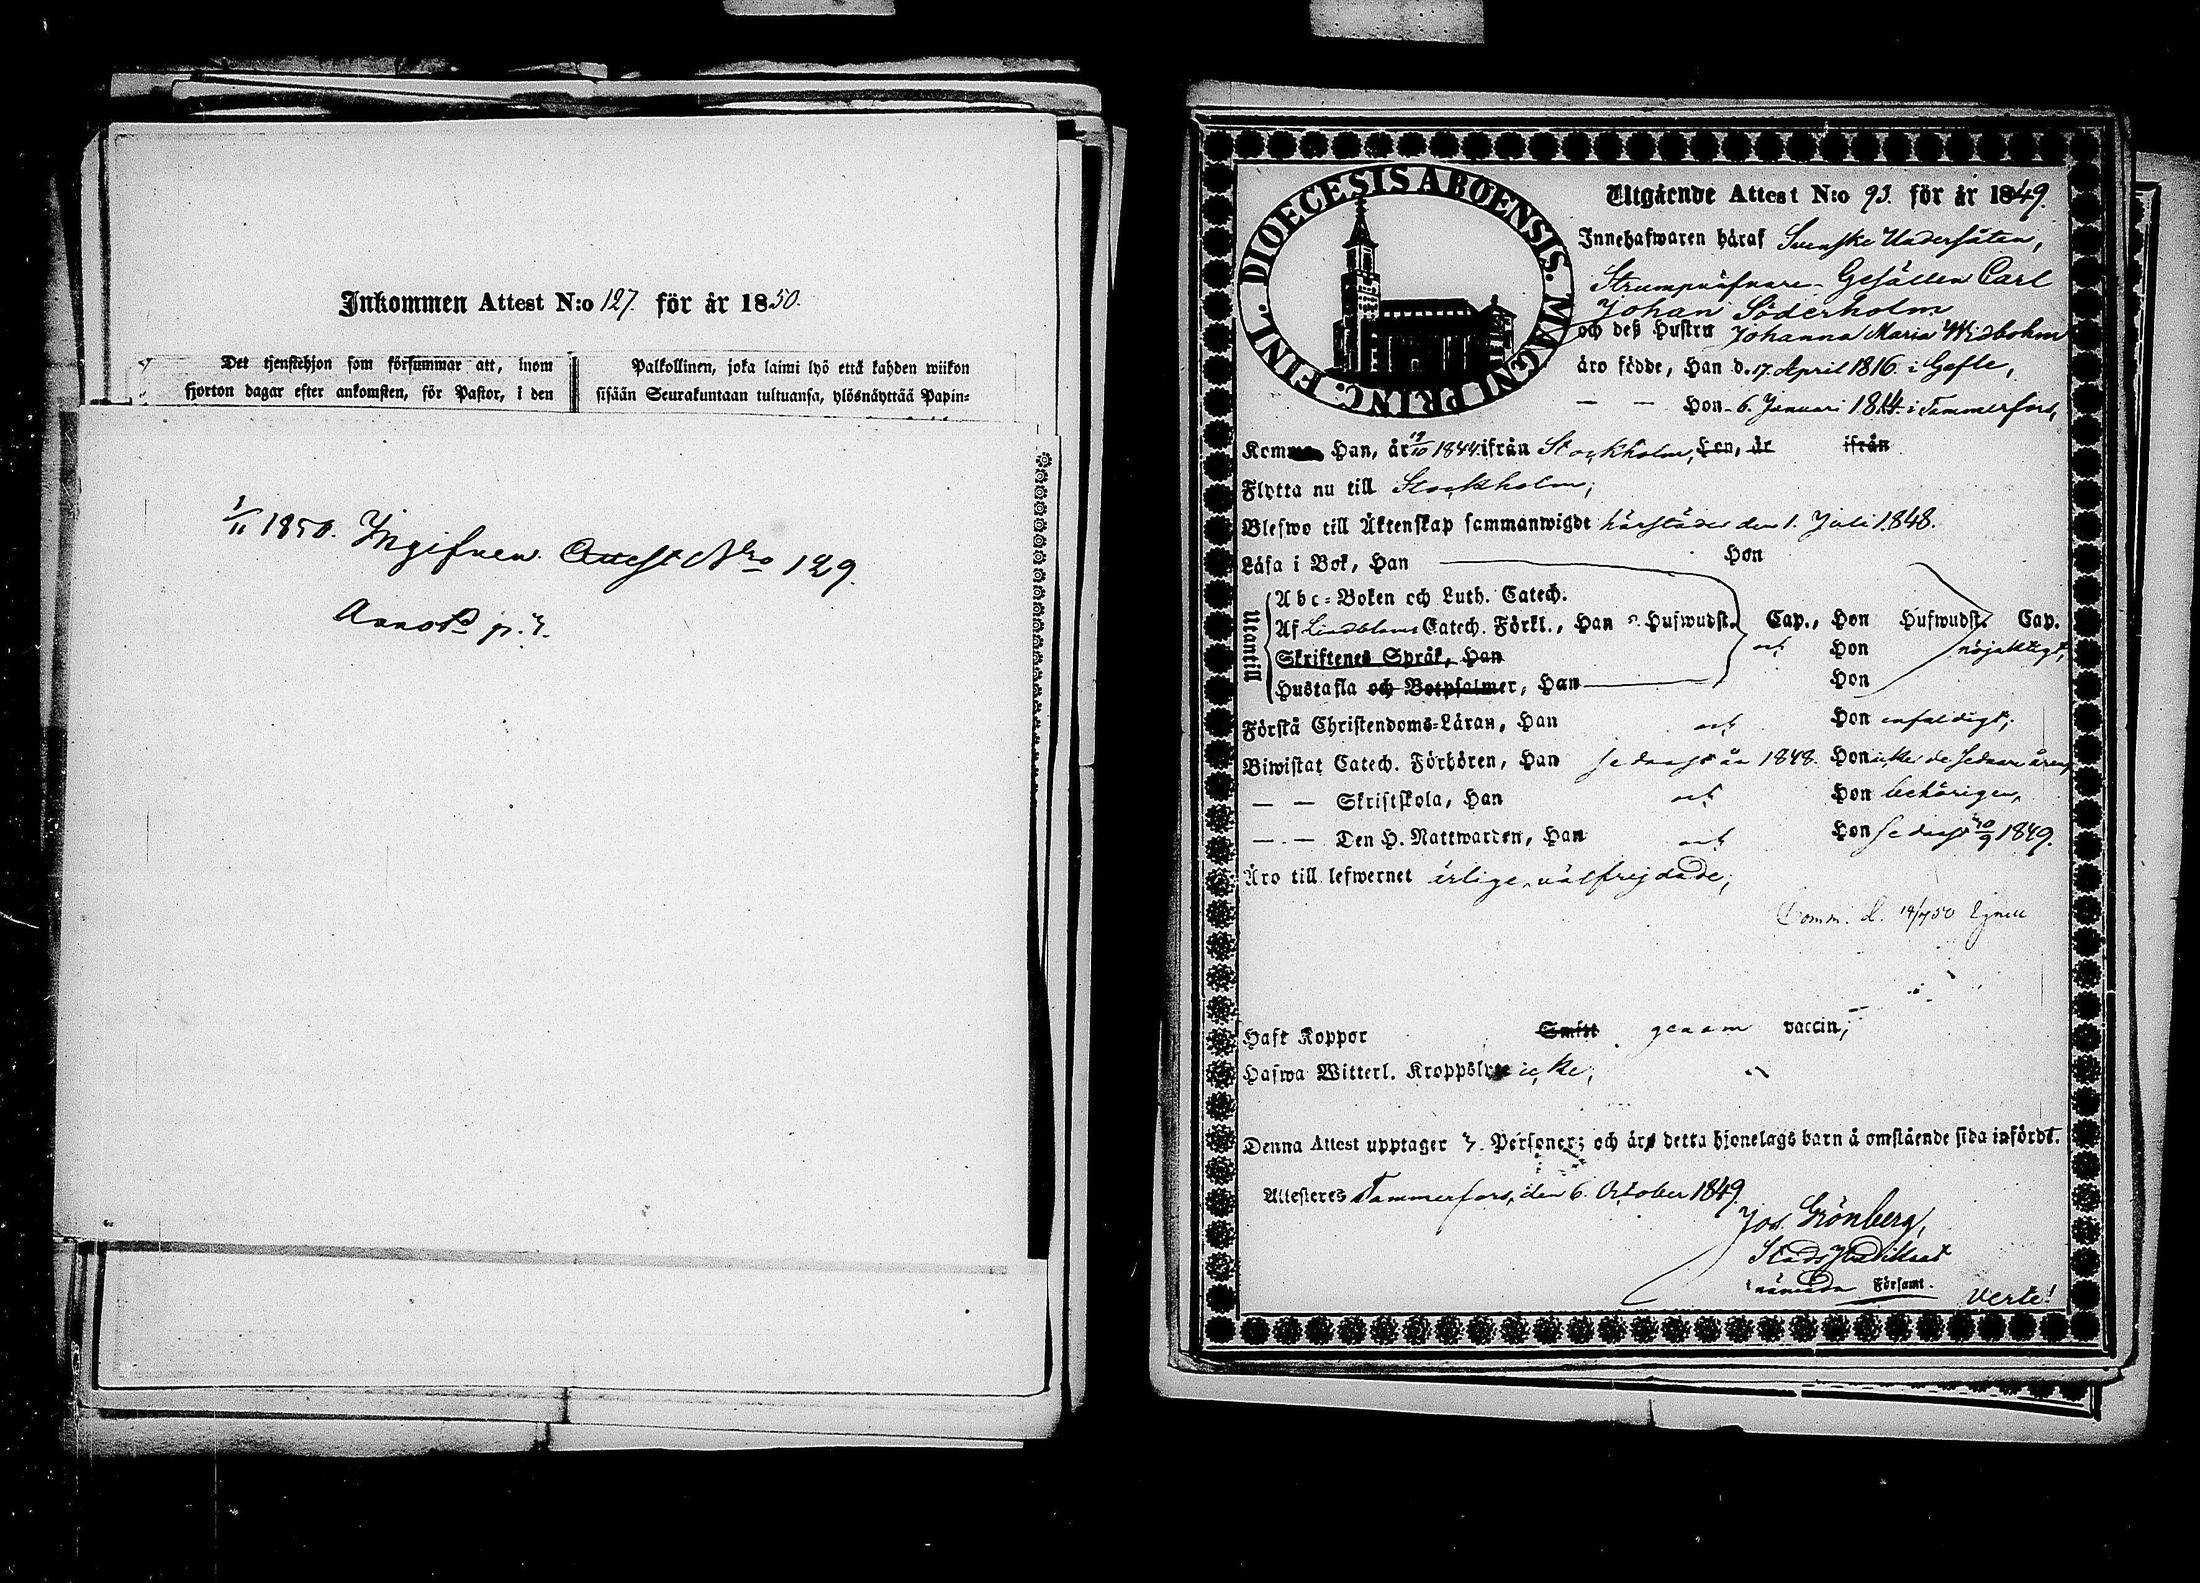 Inkommen Attest N:o 127. för år 1850.
Det tjenstehjon som försummar att, inom
fjorton dagar efter ankomsten, för Pastor, i den
Palkollinen, joka laimi lyö että kahden wiikon
sisään Seurakuntaan tultuansa, ylösnäyttää Papin-
1/11 1850. Ingifven Attest Nro 129.
Annot. p. 7.
DIOECESIS ABOENSIS. MAGNI PRINC. FINL.
Utgående Attest N:o 93. för år 1849.
Innehafwaren häraf Svenske Undersåten,
Strumpväfvare-Gesällen Carl
Johan Söderholm
och deß Hustru Johanna Maria Widbohm
äro födde, Han d. 17. April 1816. i Gefle,
— — Hon 6. Januari 1814. i Tammerfors,
Komm Han, år 19/10 1844. ifrån Stockholm, Hon, år ifrån
Flytta nu till Stockholm;
Blefwo till Äktenskap sammanwigde härstädes den 1. Juli 1848.
Läsa i Bok, Han Hon
Utantill
Abc-Boken och Luth. Catech.
Af Lindbloms Catech. Förkl., Han Hufwudst. Cap., Hon Hufwudst. Cap.
Skriftenes Språk, Han och Hon nöjaktigt,
Hustafla och Botpsalmer, Han Hon
Förstå Christendoms-Läran, Han och Hon enfaldigt;
Biwistat Catech. Förhören, Han sednast år 1848. Hon icke de sednare åren,
— — Skriftskola, Han och Hon behörigen,
— — Den H. Nattwarden, Han och Hon sednast 30/9 1849.
Äro till lefwernet ärlige, välfrejdade;
Comm. d. 14/7 50
Haft Koppor Smitt genom vaccin;
Hafwa Witterl. Kroppslyte icke;
Denna Attest upptager 7. Personer; och är detta hjonelags barn å omstående sida infördt.
Attesteres Tammerfors, den 6. October 1849.
Jos. Grönberg,
i nämnda Församl.
Verte!